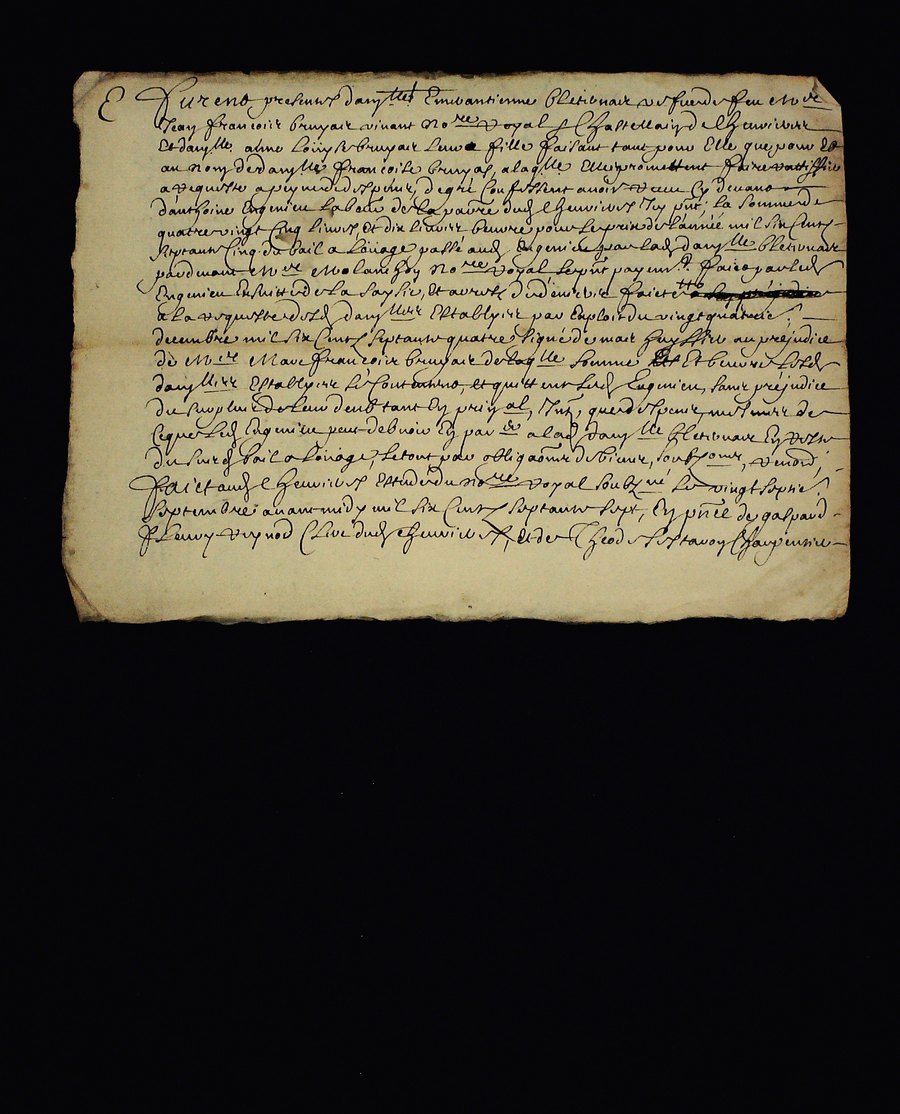 Furent presentes dam.lle Emerantienne Bletionair vefve de feu M.re
Jean francois bruyair vivant No.re Royal & Chastellain de Chenrieres
Et dam.lle anne Louyse bruyair Leur fille faisant tant pour Elle que pour Et
au nom de dam.lle francoise bruyas, a laq.lle Elle promettent faire ratiffier
a requeste a peyne de despens, de gré Confessent avoir receu Cy devant
d'anthoine Engenieu Laboureur de la parre dud. Chenrieres Icy pnt La Somme de
quatre vingt Cinq Livres, Et dix Livres beurre pour le prix de l'année mil six Cents
septante Cinq du bail a Louage passé aud. Engenieu par lad. dam.lle bletionair
pardevant M.re Molanchon No.re Royal le pnt payem.t faict par led.
Engenieu Ensuitte de la saysie, Et arrest de deniers faicte
a la requeste desd. dam.lles Establyes par Exploit du vingt quatrie
decembre mil six Cents septante quatre signé demair huyssier au prejudice
de M.re Marc francois bruyair de laq.lle Somme Et beurre Lesd.
dam.lles Establyes Se Contentent, et quittent Led. Engenieu, sans prejudice
du surplus de leur deub tant En prin.al, Intz, que despens, mesmes de
Ceque Led. Engenieu peut debvoir En par.er a lad. dam.lle bletionair En reste
du susd. bail a Louage, Le tout par obligaons de biens, soubz.ons, renon,
faict aud. Chenrieres Estude du No.re Royal soubz.né Le vingt septie
Septembre avant midy mil six Cents septante sept, En pnce de gaspard
fleury reynod Clerc dud. Chenrieres, et de Theode Charpentier